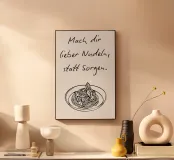 Mach dir
lieber Nudeln,
statt Sorgen.